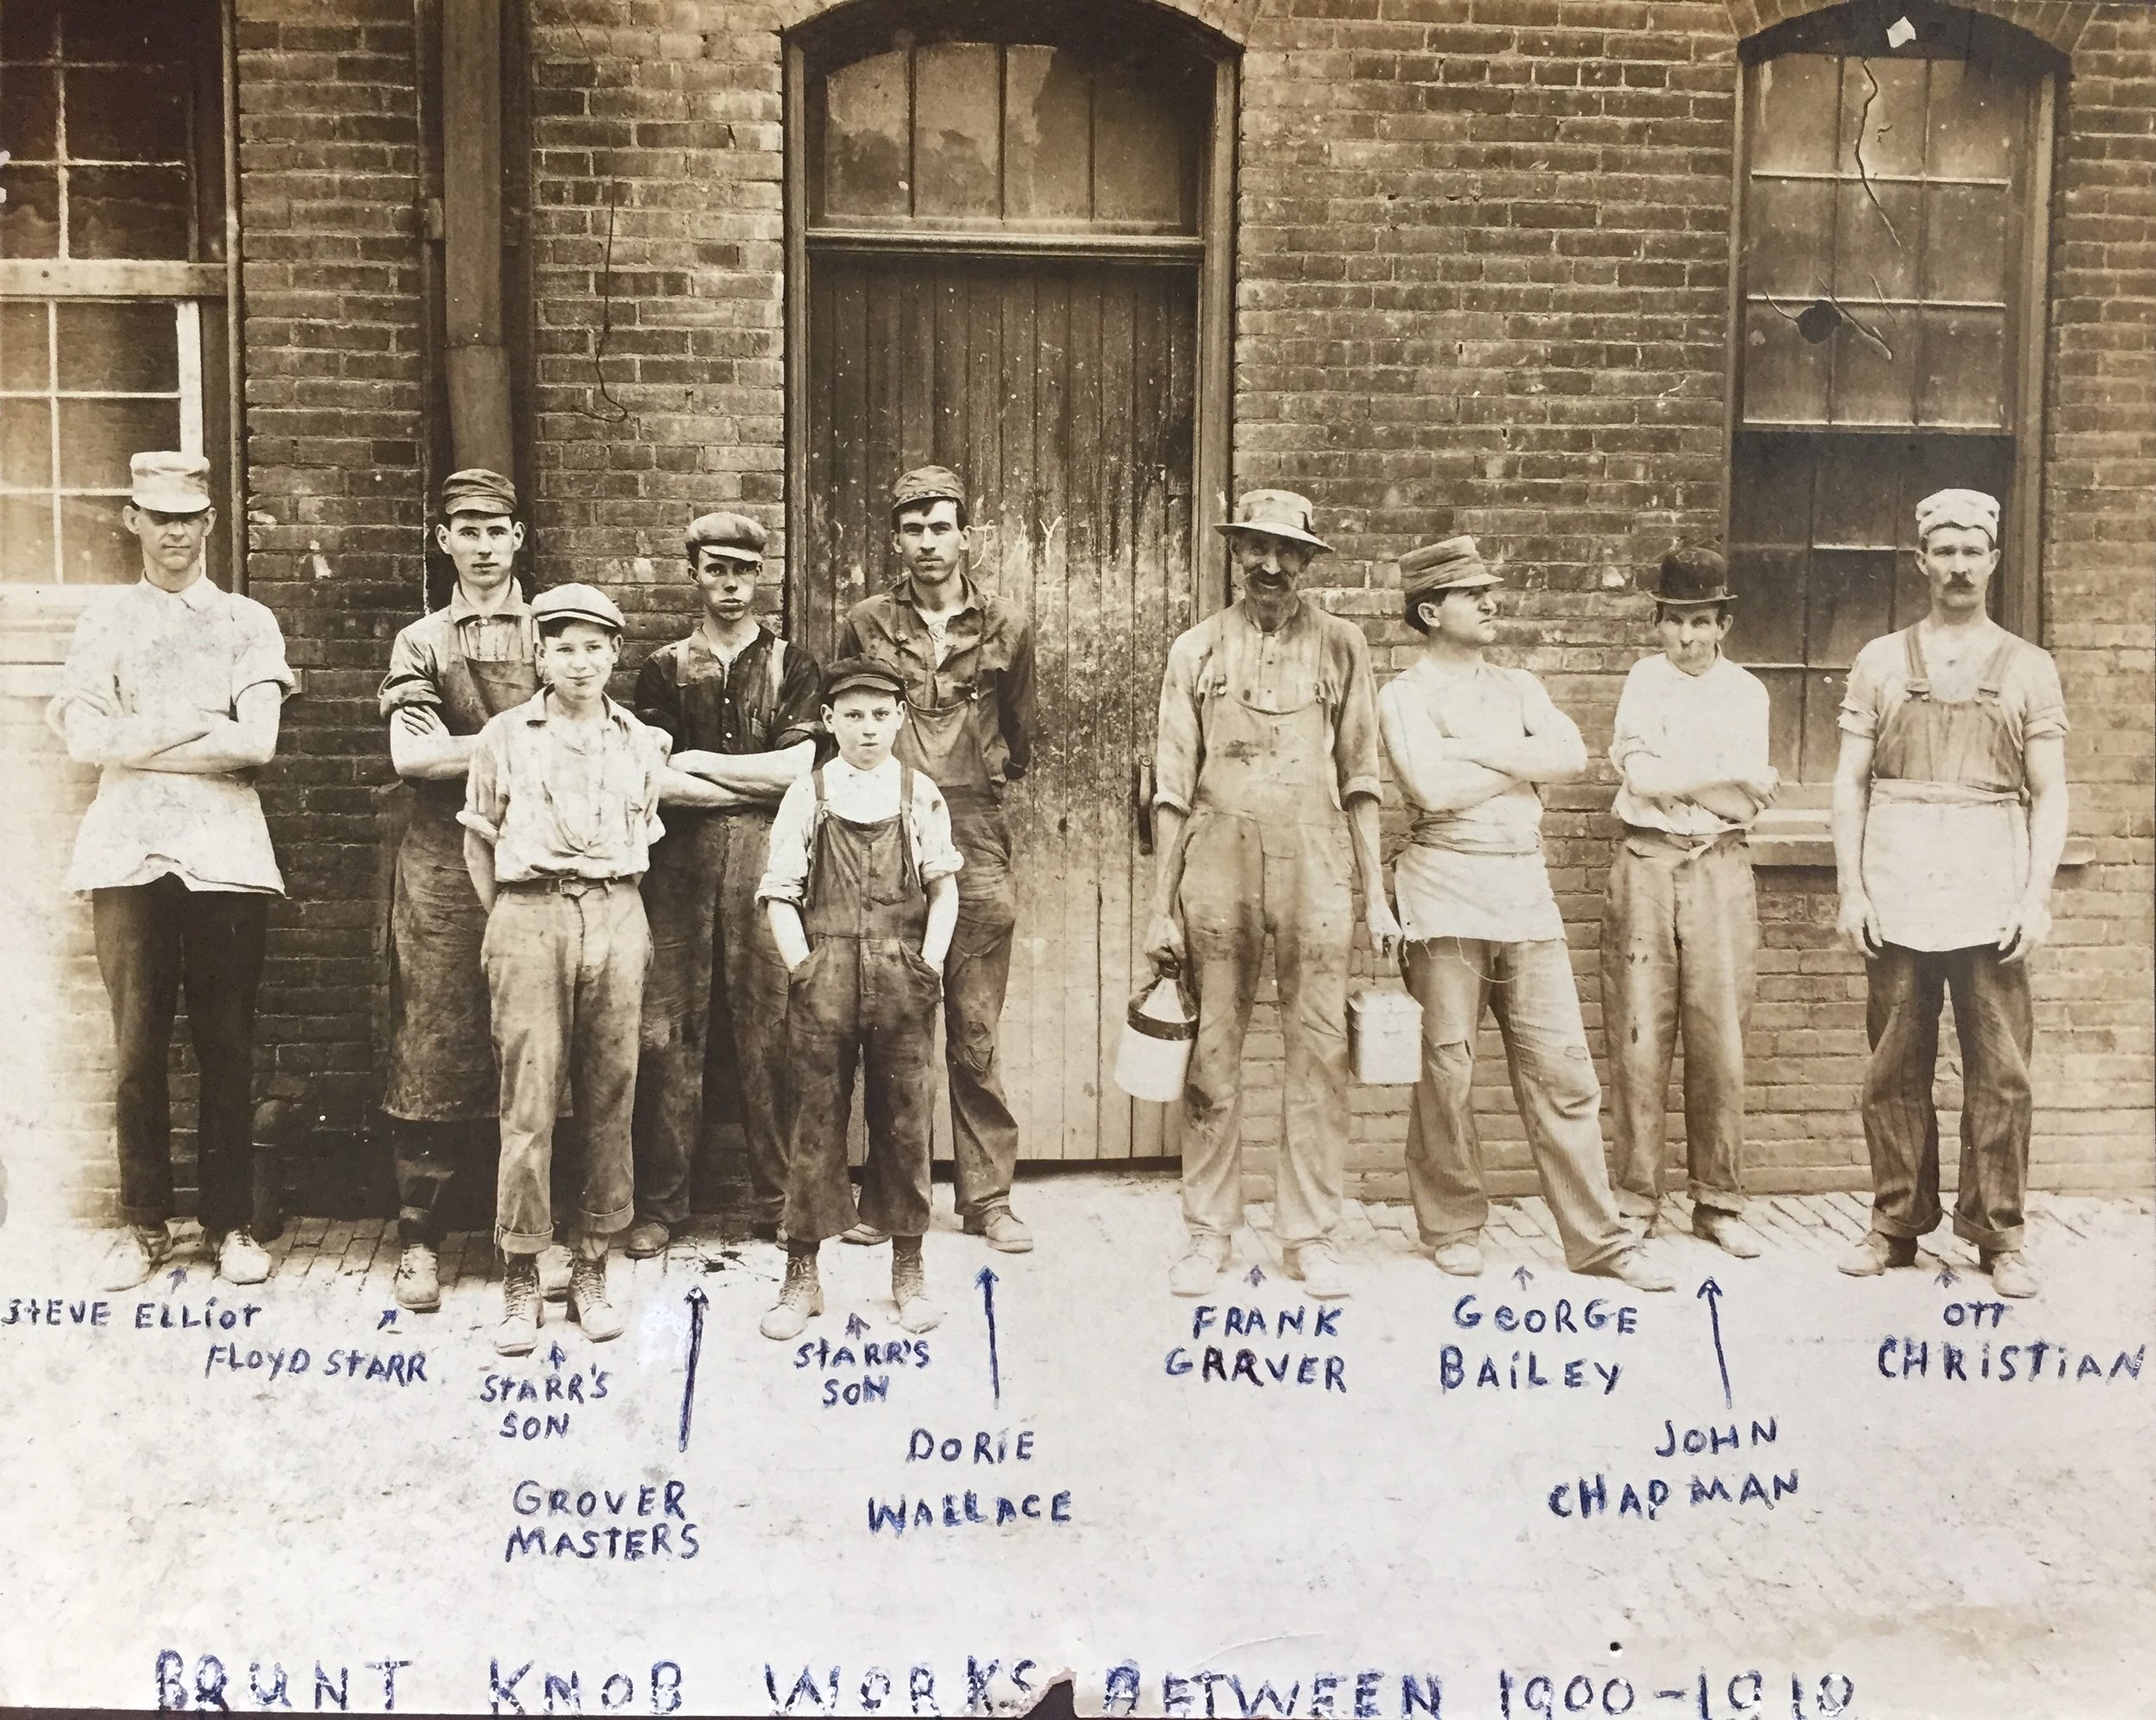 STEVE ELLIOT
FLOYD STARR
STARR'S
SON
GROVER
MASTERS
STARR'S
SON
DORIE
WALLACE
FRANK
GRAVER
GEORGE
BAILEY
JOHN
CHAPMAN
OTT
CHRISTIAN
BRUNT KNOB WORKS BETWEEN 1900-1910